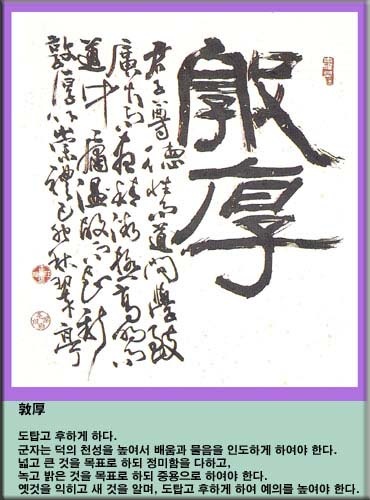 敦厚
君子尊德性而道問學致
廣大而盡精微極高明而
道中庸溫故而知新
敦厚以崇禮
敦厚
도탑고 후하게 하다.
군자는 덕의 천성을 높여서 배움과 물음을 인도하게 하여야 한다.
넓고 큰 것을 목표로 하되 정미함을 다하고,
녹고 밝은 것을 목표로 하되 중용으로 하여야 한다.
옛것을 익히고 새 것을 알며, 도탑고 후하게 하여 예의를 높여야 한다.